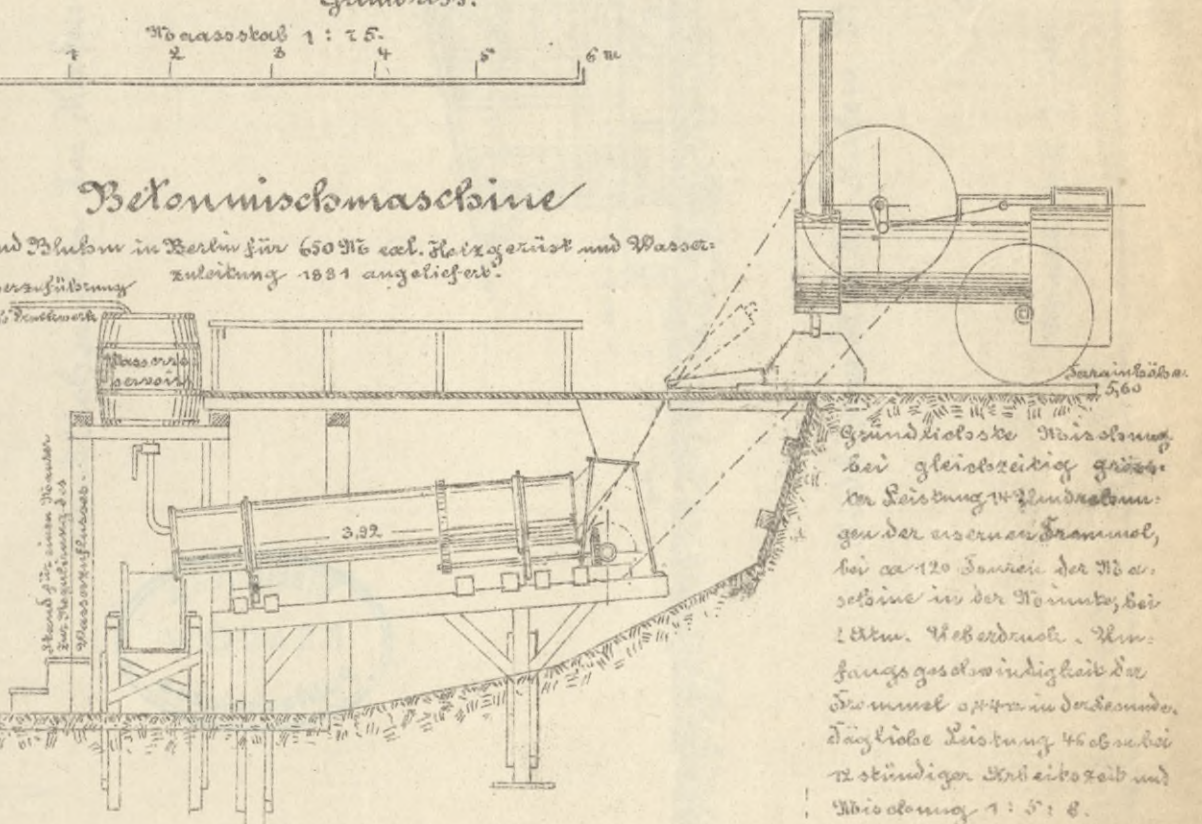 Grundriss.
Maassstab 1 : 75.
1 2 3 4 5 6 m
Betonmischmaschine
nd Bluhm in Berlin für 650 M excl. Holzgerüst und Wasser-
zuleitung 1881 angeliefert.
erzuführung
Druckwerk
Wasserre
servoir
3,92
Stand für einen Mann
zur Regulierung des
Wasserzuflusses.
Terrainhöhe
5,60
Gründlichste Mischung
bei gleichzeitig gröss-
ter Leistung 14 Umdrehun-
gen der eisernen Trommel,
bei ca 120 Touren der Ma-
schine in der Minute, bei
Atm. Ueberdruck. Um-
fangsgeschwindigkeit der
Trommel 0,44 m in der Secunde.
Tägliche Leistung 45 cbm bei
12 stündiger Arbeitszeit und
Mischung 1 : 5 : 8.